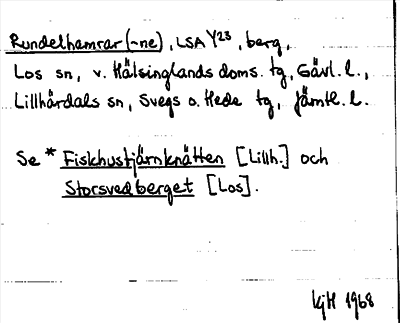 Rundelhamrar (-ne), LSA Y23, berg,
Los sn, v. Hälsinglands doms. tg, Gävl. l.,
Lillhärdals sn, Svegs o. Hede tg, Jämtl. l.
Se * Fiskhustjärnknätten [Lillh.] och
Storsvedberget [Los].
KjH 1968